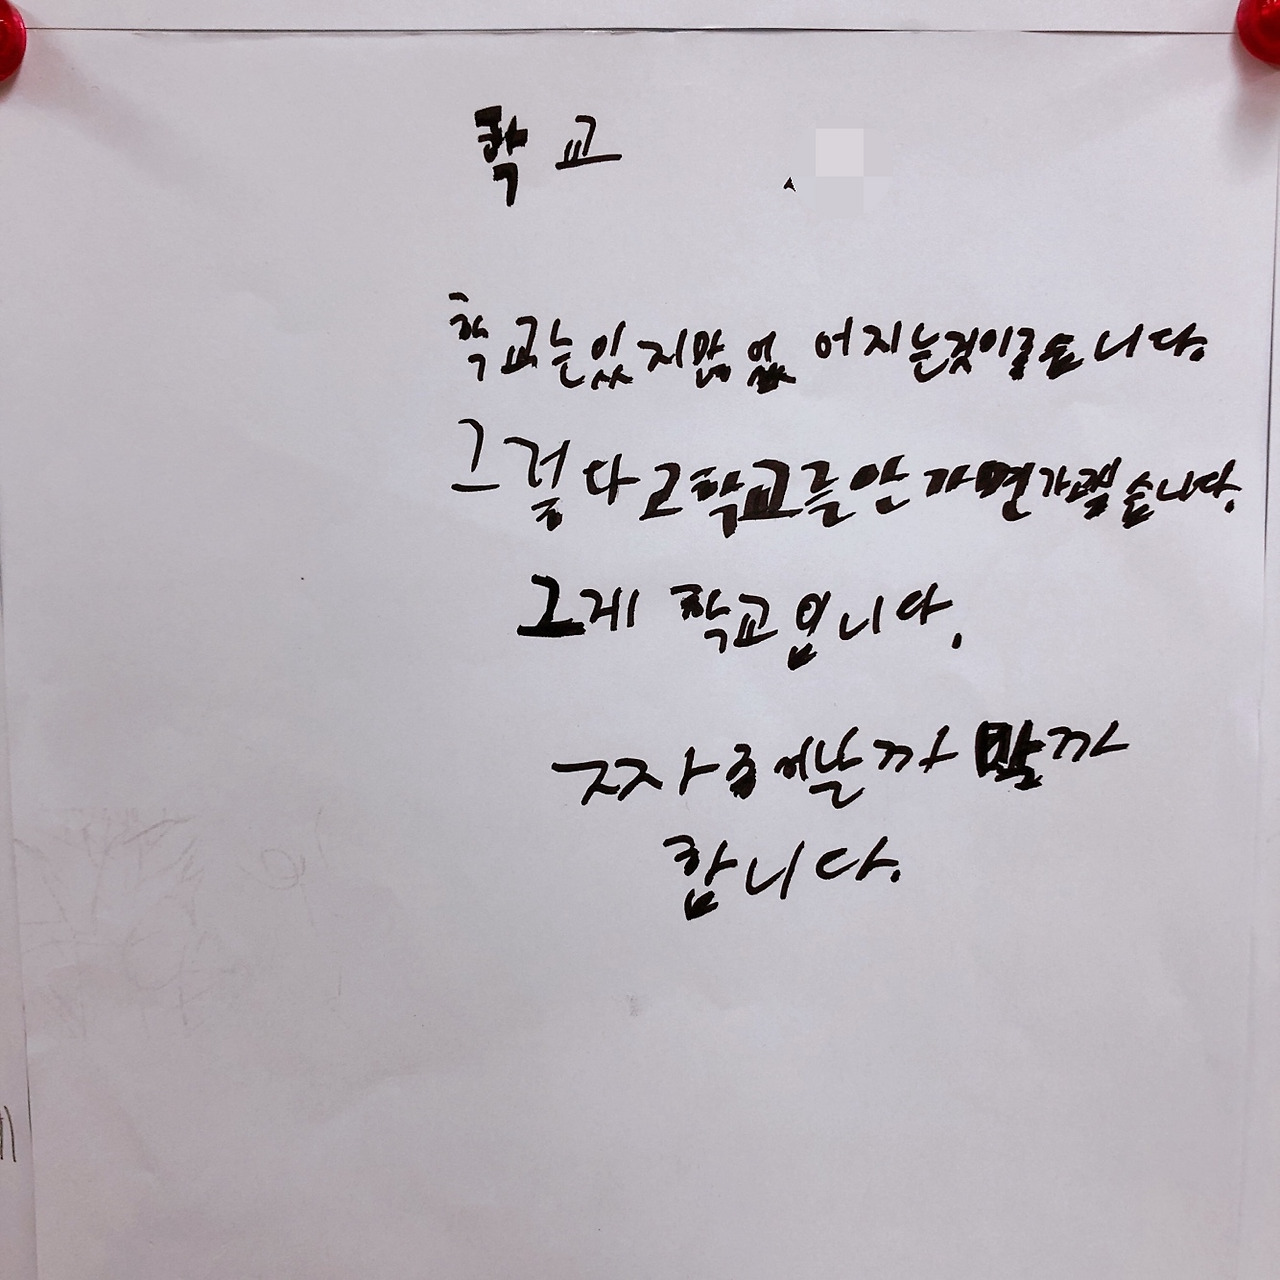 학교
학교는있지만 없어지는것이 좋습니다.
그렇다고학교를안가면가겠습니다.
그게 학교입니다.
날까말까
합니다.